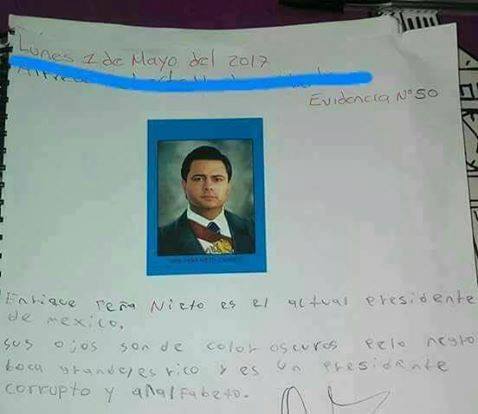 Lunes 1 de Mayo del 2017
Evidencia N°50
Enrique Peña Nieto es el actual Presidente
de mexico.
sus ojos son de color oscuros Pelo negro
boca grande,es rico y es un Presidente
corrupto y analfabeto.